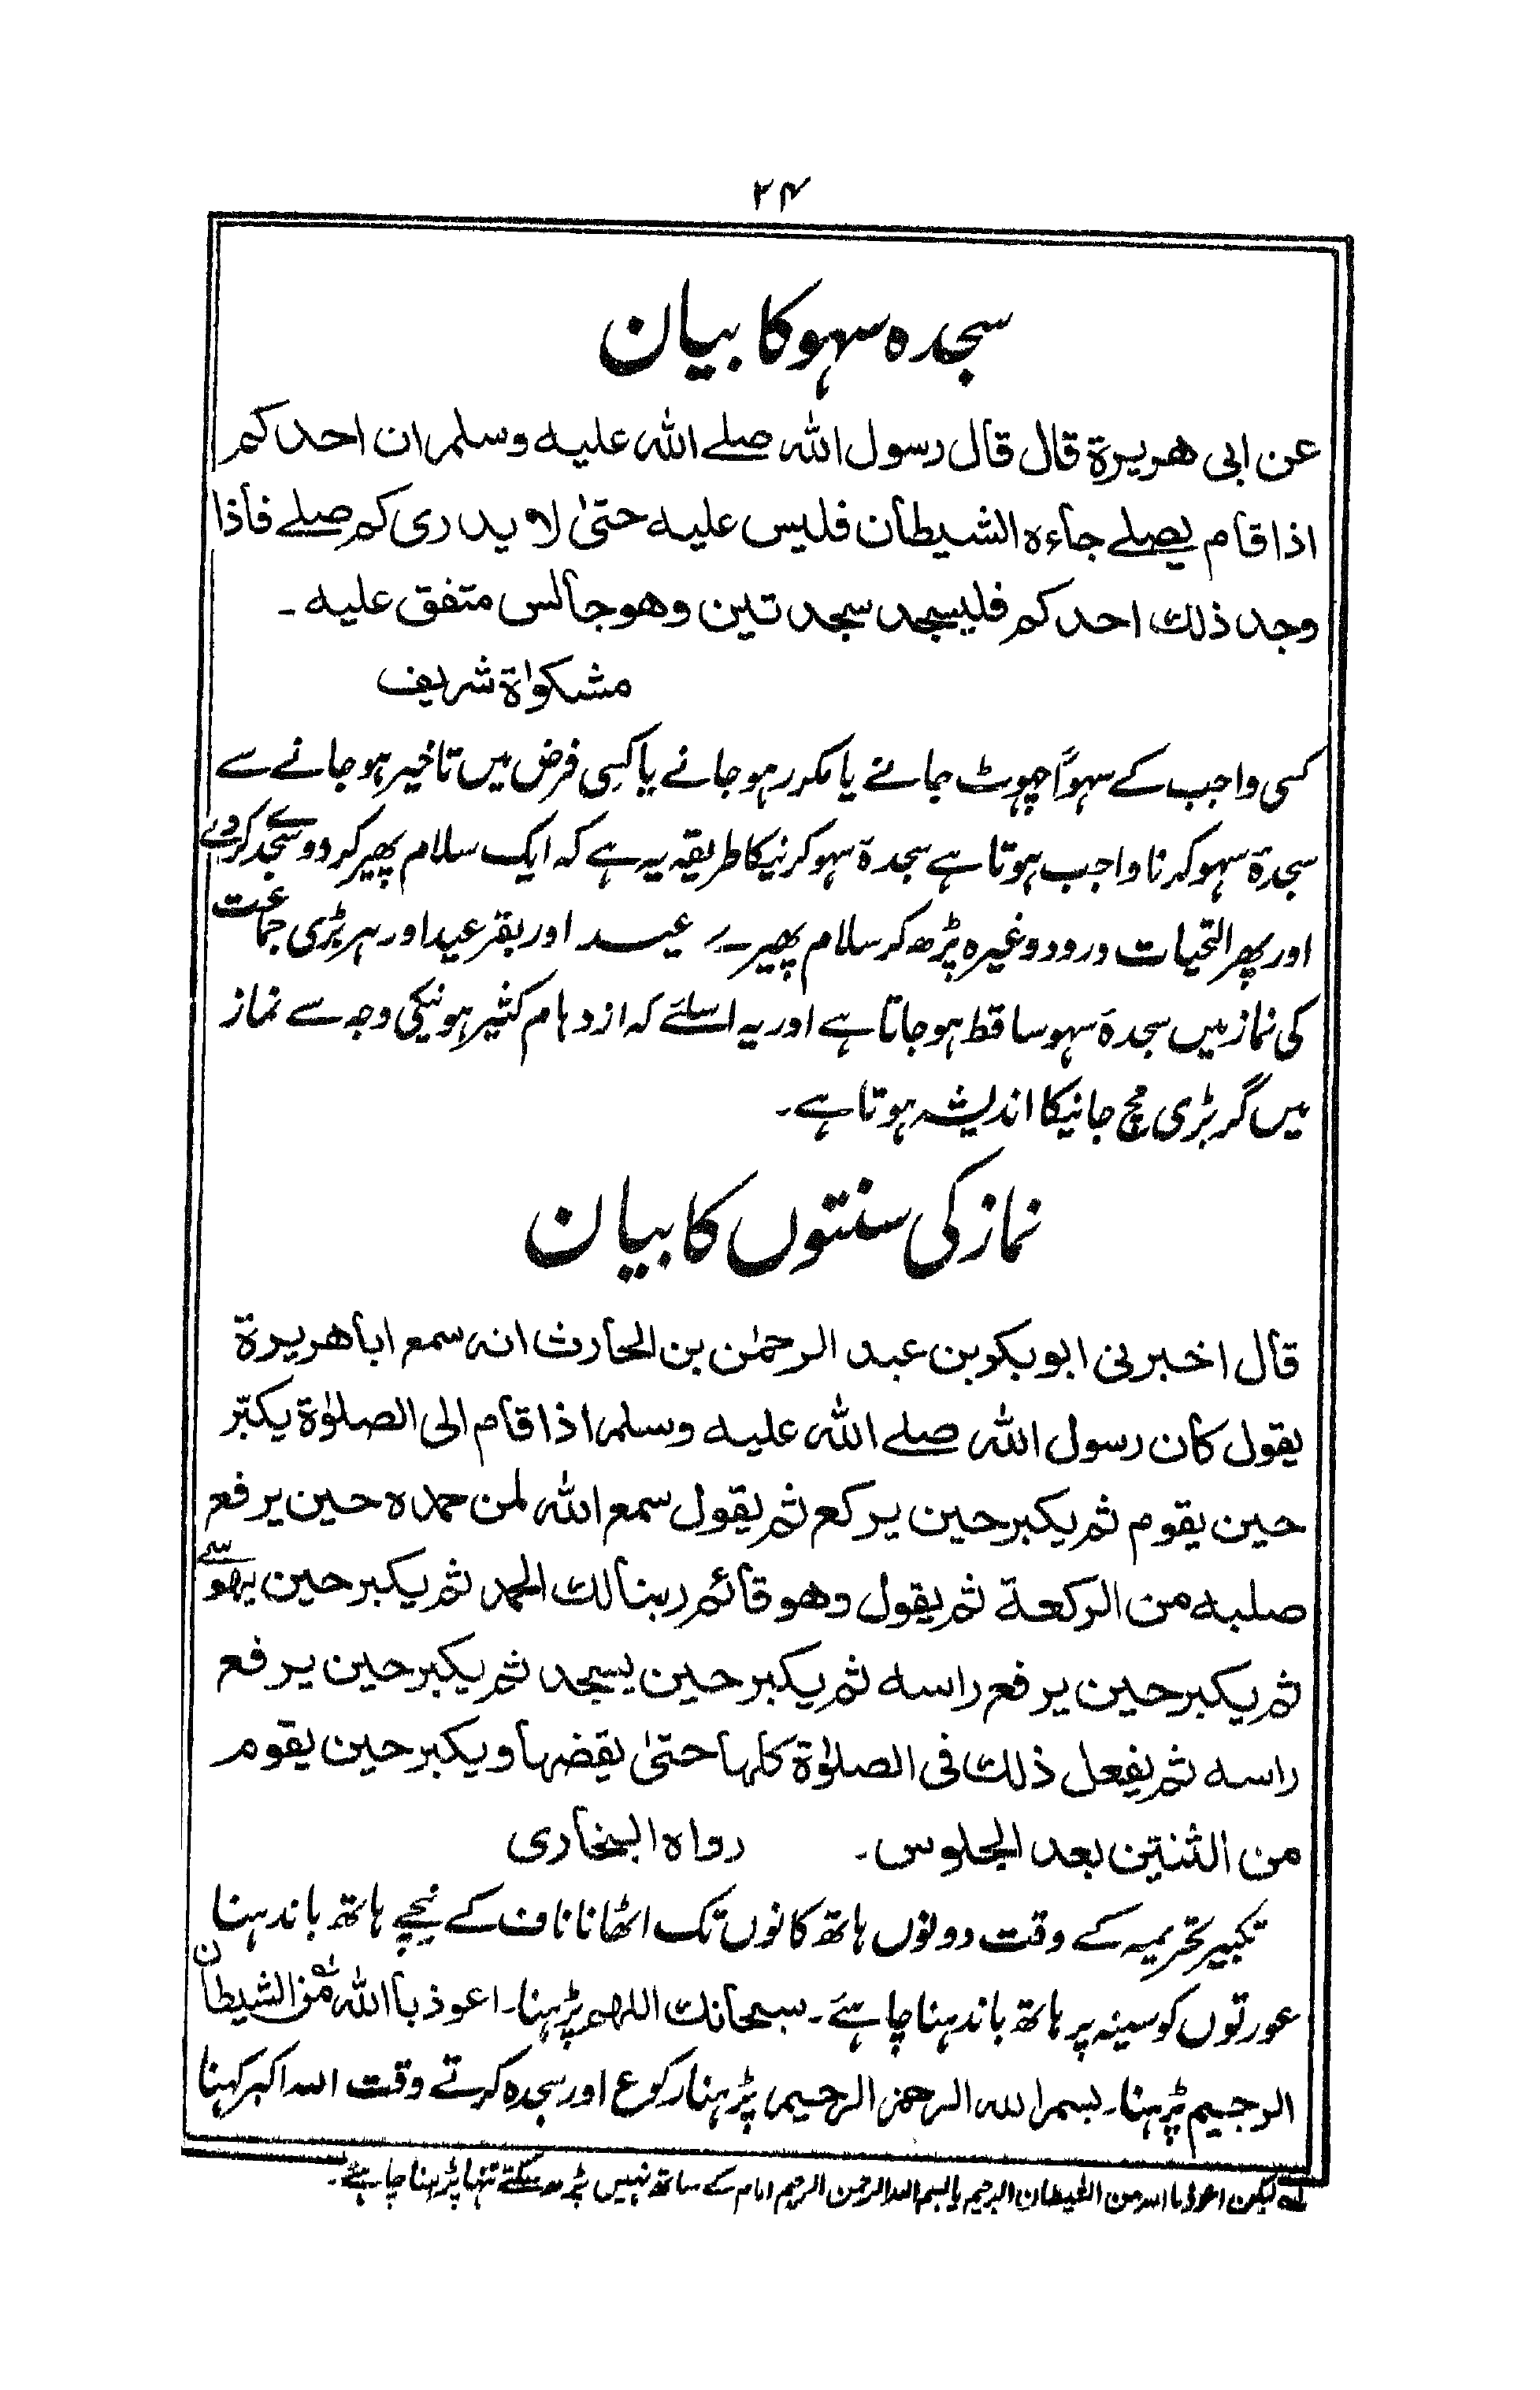 ۲۴
سجدہ سہو کا بیان
عن ابی ھریرۃ قال قال رسول اللہ صلے اللہ علیہ وسلم ان احدکم
اذا قام یصلے جاءہ الشیطان فلبس علیہ حتیٰ لا یدری کم صلے فاذا
وجد ذلک احدکم فلیسجد سجدتین وھو جالس متفق علیہ ۔
مشکواۃ شریف
کسی واجب کے سہواً چھوٹ جانے یا مکرر ہو جانے یا کسی فرض میں تاخیر ہو جانے سے
سجدۃ سہو کرنا واجب ہوتا ہے سجدۃ سہو کرنیکا طریقہ یہ ہے کہ ایک سلام پھیر کر دو سجدے کرے
اور پھر التحیات درود وغیرہ پڑھ کر سلام پھیرے عید اور بقر عید اور ہر بڑی جماعت
کی نماز میں سجدۃ سہو ساقط ہو جاتا ہے اور یہ اسلئے کہ ازدہام کثیر ہونیکی وجہ سے نماز
میں گڑبڑی مچ جانیکا اندیشہ ہوتا ہے۔
نماز کی سنتوں کا بیان
قال اخبرنی ابوبکر بن عبد الرحمٰن بن الحارث انہ سمع اباھریرۃ
یقول کان رسول اللہ صلے اللہ علیہ وسلم اذا قام الی الصلوٰۃ یکبّر
حین یقوم ثم یکبر حین یرکع ثم یقول سمع اللہ لمن حمدہ حین یرفع
صلبہ من الرکعۃ ثم یقول وھو قائم ربنا لک الحمد ثم یکبر حین یھوے
ثم یکبر حین یرفع راسہ ثم یکبر حین یسجد ثم یکبر حین یرفع
راسہ ثم یفعل ذلک فی الصلوٰۃ کلہا حتیٰ یقضہا ویکبر حین یقوم
من الثنتین بعد الجلوس ۔ رواہ البخاری
تکبیر تحریمہ کے وقت دونوں ہاتھ کانوں تک اٹھانا ناف کے نیچے ہاتھ باندہنا
عورتوں کو سینہ پر ہاتھ باندہنا چاہئے ۔ سبحانک اللھم پڑہنا۔ اعوذ باللہ من الشیطان
الرجیم پڑہنا۔ بسم اللہ الرحمن الرحیم پڑہنا رکوع اور سجدہ کرتے وقت اللہ اکبر کہنا
لہ لیکن اعوذ باللہ من الشیطان الرجیم یا بسم اللہ الرحمن الرحیم امام کے ساتھ نہیں پڑھ سکتے تنہا پڑہنا چاہئے ۔